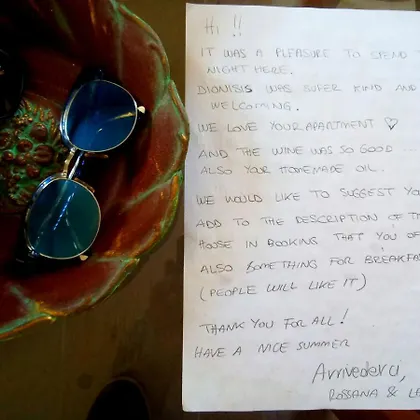 HI !!
IT WAS A PLEASURE TO SPEND
NIGHT HERE.
DIONISIS WAS SUPER KIND AND
WELCOMING.
WE LOVE YOUR APARTMENT ♡
AND THE WINE WAS SO GOOD ...
ALSO YOUR HOMEMADE OIL.
WE WOULD LIKE TO SUGGEST YO
ADD TO THE DESCRIPTION OF TH
HOUSE IN BOOKING THAT YOU OF
ALSO SOMETHING FOR BREAKFA
(PEOPLE WILL LIKE IT)
THANK YOU FOR ALL!
HAVE A NICE SUMMER
Arrivederci,
ROSSANA & LE